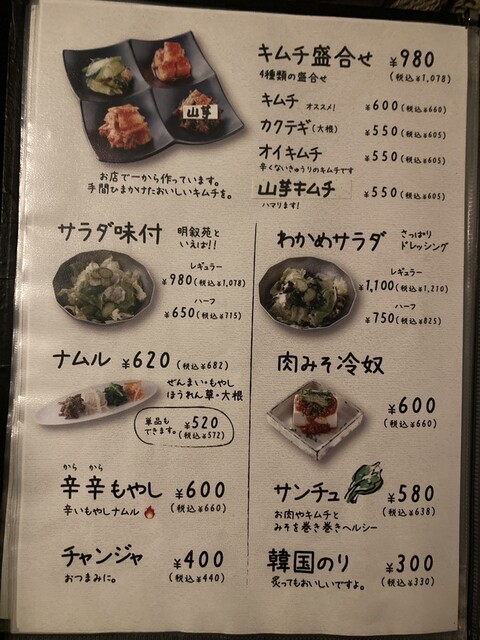 キムチ盛合せ ¥980
4種類の盛合せ (税込¥1,078)
キムチ オススメ! ¥600(税込¥660)
カクテギ(大根) ¥550(税込¥605)
オイキムチ ¥550(税込¥605)
辛くないきゅうりのキムチです
山芋キムチ ¥550(税込¥605)
ハマります!
山芋
お店で一から作っています。
手間ひまかけたおいしいキムチを。
サラダ味付 明叙苑と
いえば!!
レギュラー
¥980(税込¥1,078)
ハーフ
¥650(税込¥715)
わかめサラダ さっぱり
ドレッシング
レギュラー
¥1,100(税込¥1,210)
ハーフ
¥750(税込¥825)
ナムル ¥620(税込¥682)
ぜんまい・もやし
ほうれん草・大根
単品も
できます。 ¥520
(税込¥572)
肉みそ冷奴
¥600
(税込¥660)
から から
辛辛もやし ¥600
辛いもやしナムル (税込¥660)
サンチュ ¥580
お肉やキムチと (税込¥638)
みそを巻き巻きヘルシー
チャンジャ ¥400
おつまみに。 (税込¥440)
韓国のり ¥300
炙ってもおいしいですよ。 (税込¥330)